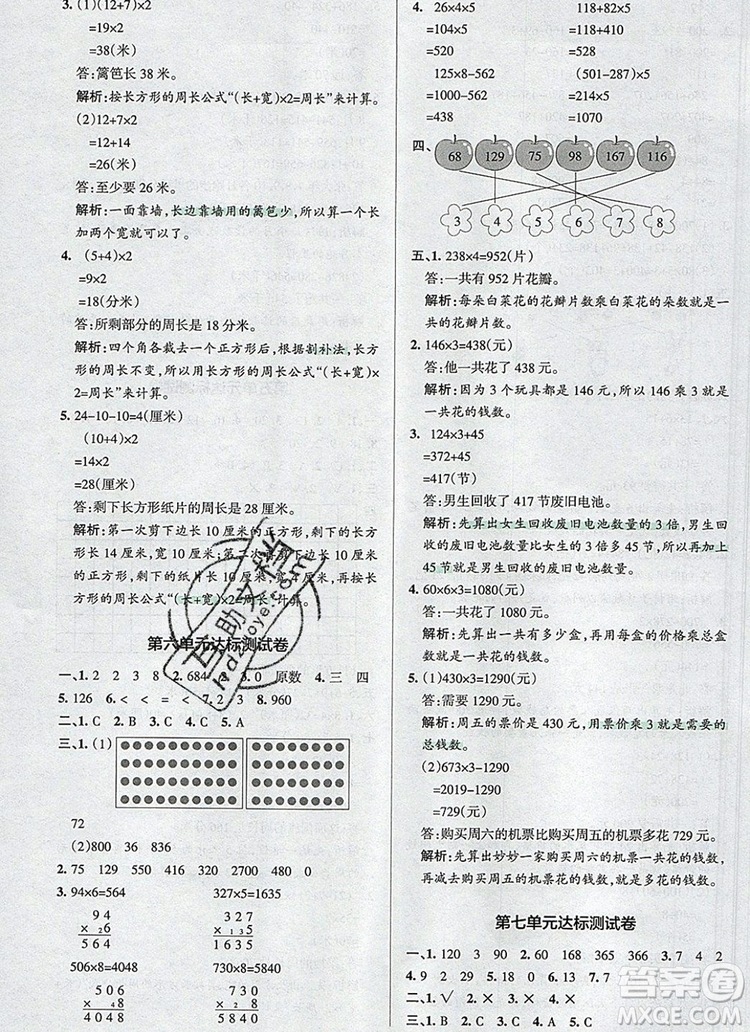 3. (1)(12+7)×2
=19×2
=38(米)
答:篱笆长 38 米。
解析:按长方形的周长公式“(长+宽)×2=周长”来计算。
(2)12+7×2
=12+14
=26(米)
答:至少要 26 米。
解析:一面靠墙,长边靠墙用的篱笆少,所以算一个长
加两个宽就可以了。
4. (5+4)×2
=9×2
=18(分米)
答:所剩部分的周长是 18 分米。
解析:四个角各截去一个正方形后,根据平移,长方形
的周长不变,所以用长方形的周长公式“(长+宽)×
2=周长”来计算。
5. 24-10-10=4(厘米)
(10+4)×2
=14×2
=28(厘米)
答:剩下长方形纸片的周长是 28 厘米。
解析:第一次剪下边长 10 厘米的正方形,剩下的长方
形长 14 厘米,宽 10 厘米;第二次
厘米的正方形,剩下的长 10 厘米,宽 4 厘米,再按长方
形的周长公式“(长+宽)×2=周长”计算。
第六单元达标测试卷
一、1. 2 2 3 8 2. 684 3. 0 原数 4. 三 四
5. 126 6. < = < < 7. 2 3 8. 960
二、1. C 2. B 3. C 4. C 5. A
三、1. (1)
72
(2)800 36 836
2. 75 129 550 416 320 2700 480 0
3. 94×6=564 327×5=1635
9 4 3 2 7
× 2 6 × 1 3 5
5 6 4 1 6 3 5
506×8=4048 730×8=5840
5 0 6 7 3 0
× 4 8 × 2 8
4 0 4 8 5 8 4 0
4. 26×4×5 208×5÷2
=104×5 =1040÷2
=520 =520
125×8-562 (501-287)×5
=1000-562 =214×5
=438 =1070
四、 68 129 75 98 167 116
3 4 5 6 7 8
五、1. 238×4=952(片)
答:一共有 952 片花瓣。
解析:每朵白菜花的花瓣片数乘白菜花的朵数就是一
共的花瓣片数。
2. 146×3=438(元)
答:他一共花了 438 元。
解析:因为 3 个玩具都是 146 元,所以 146 元乘 3 就是
一共花的钱数。
3. 124×3+45
=372+45
=417(节)
答:男生回收了 417 节废旧电池。
解析:先算出女生回收废旧电池数量的 3 倍,男生回
收的废旧电池数量比女生的 3 倍多 45 节,所以再加上
45 节就是男生回收的废旧电池数量。
4. 60×6×3=1080(元)
答:一共花了 1080 元。
解析:先算出一共有多少盒,再用每盒的价格乘总盒
数就是一共花的钱数。
5. (1)430×3=1290(元)
答:需要 1290 元。
解析:周五的票价是 430 元,用票价乘 3 就是需要的
总钱数。
(2)673×3-1290
=2019-1290
=729(元)
答:购买周六的机票比购买周五的机票多花 729 元。
解析:先算出妙妙一家购买周六的机票一共花的钱数,
再减去购买周五的机票一共花的钱数,就是多花的钱数。
第七单元达标测试卷
一、1. 120 3 90 2. 60 365 366 3. 7 4 2
4. 9 2 29 5. 18:00 6. 12 7. 7
二、1. √ 2. × 3. × 4. ×
三、1. C 2. B
互助文档
hdzuoye.com
答案圈
MXQE.COM